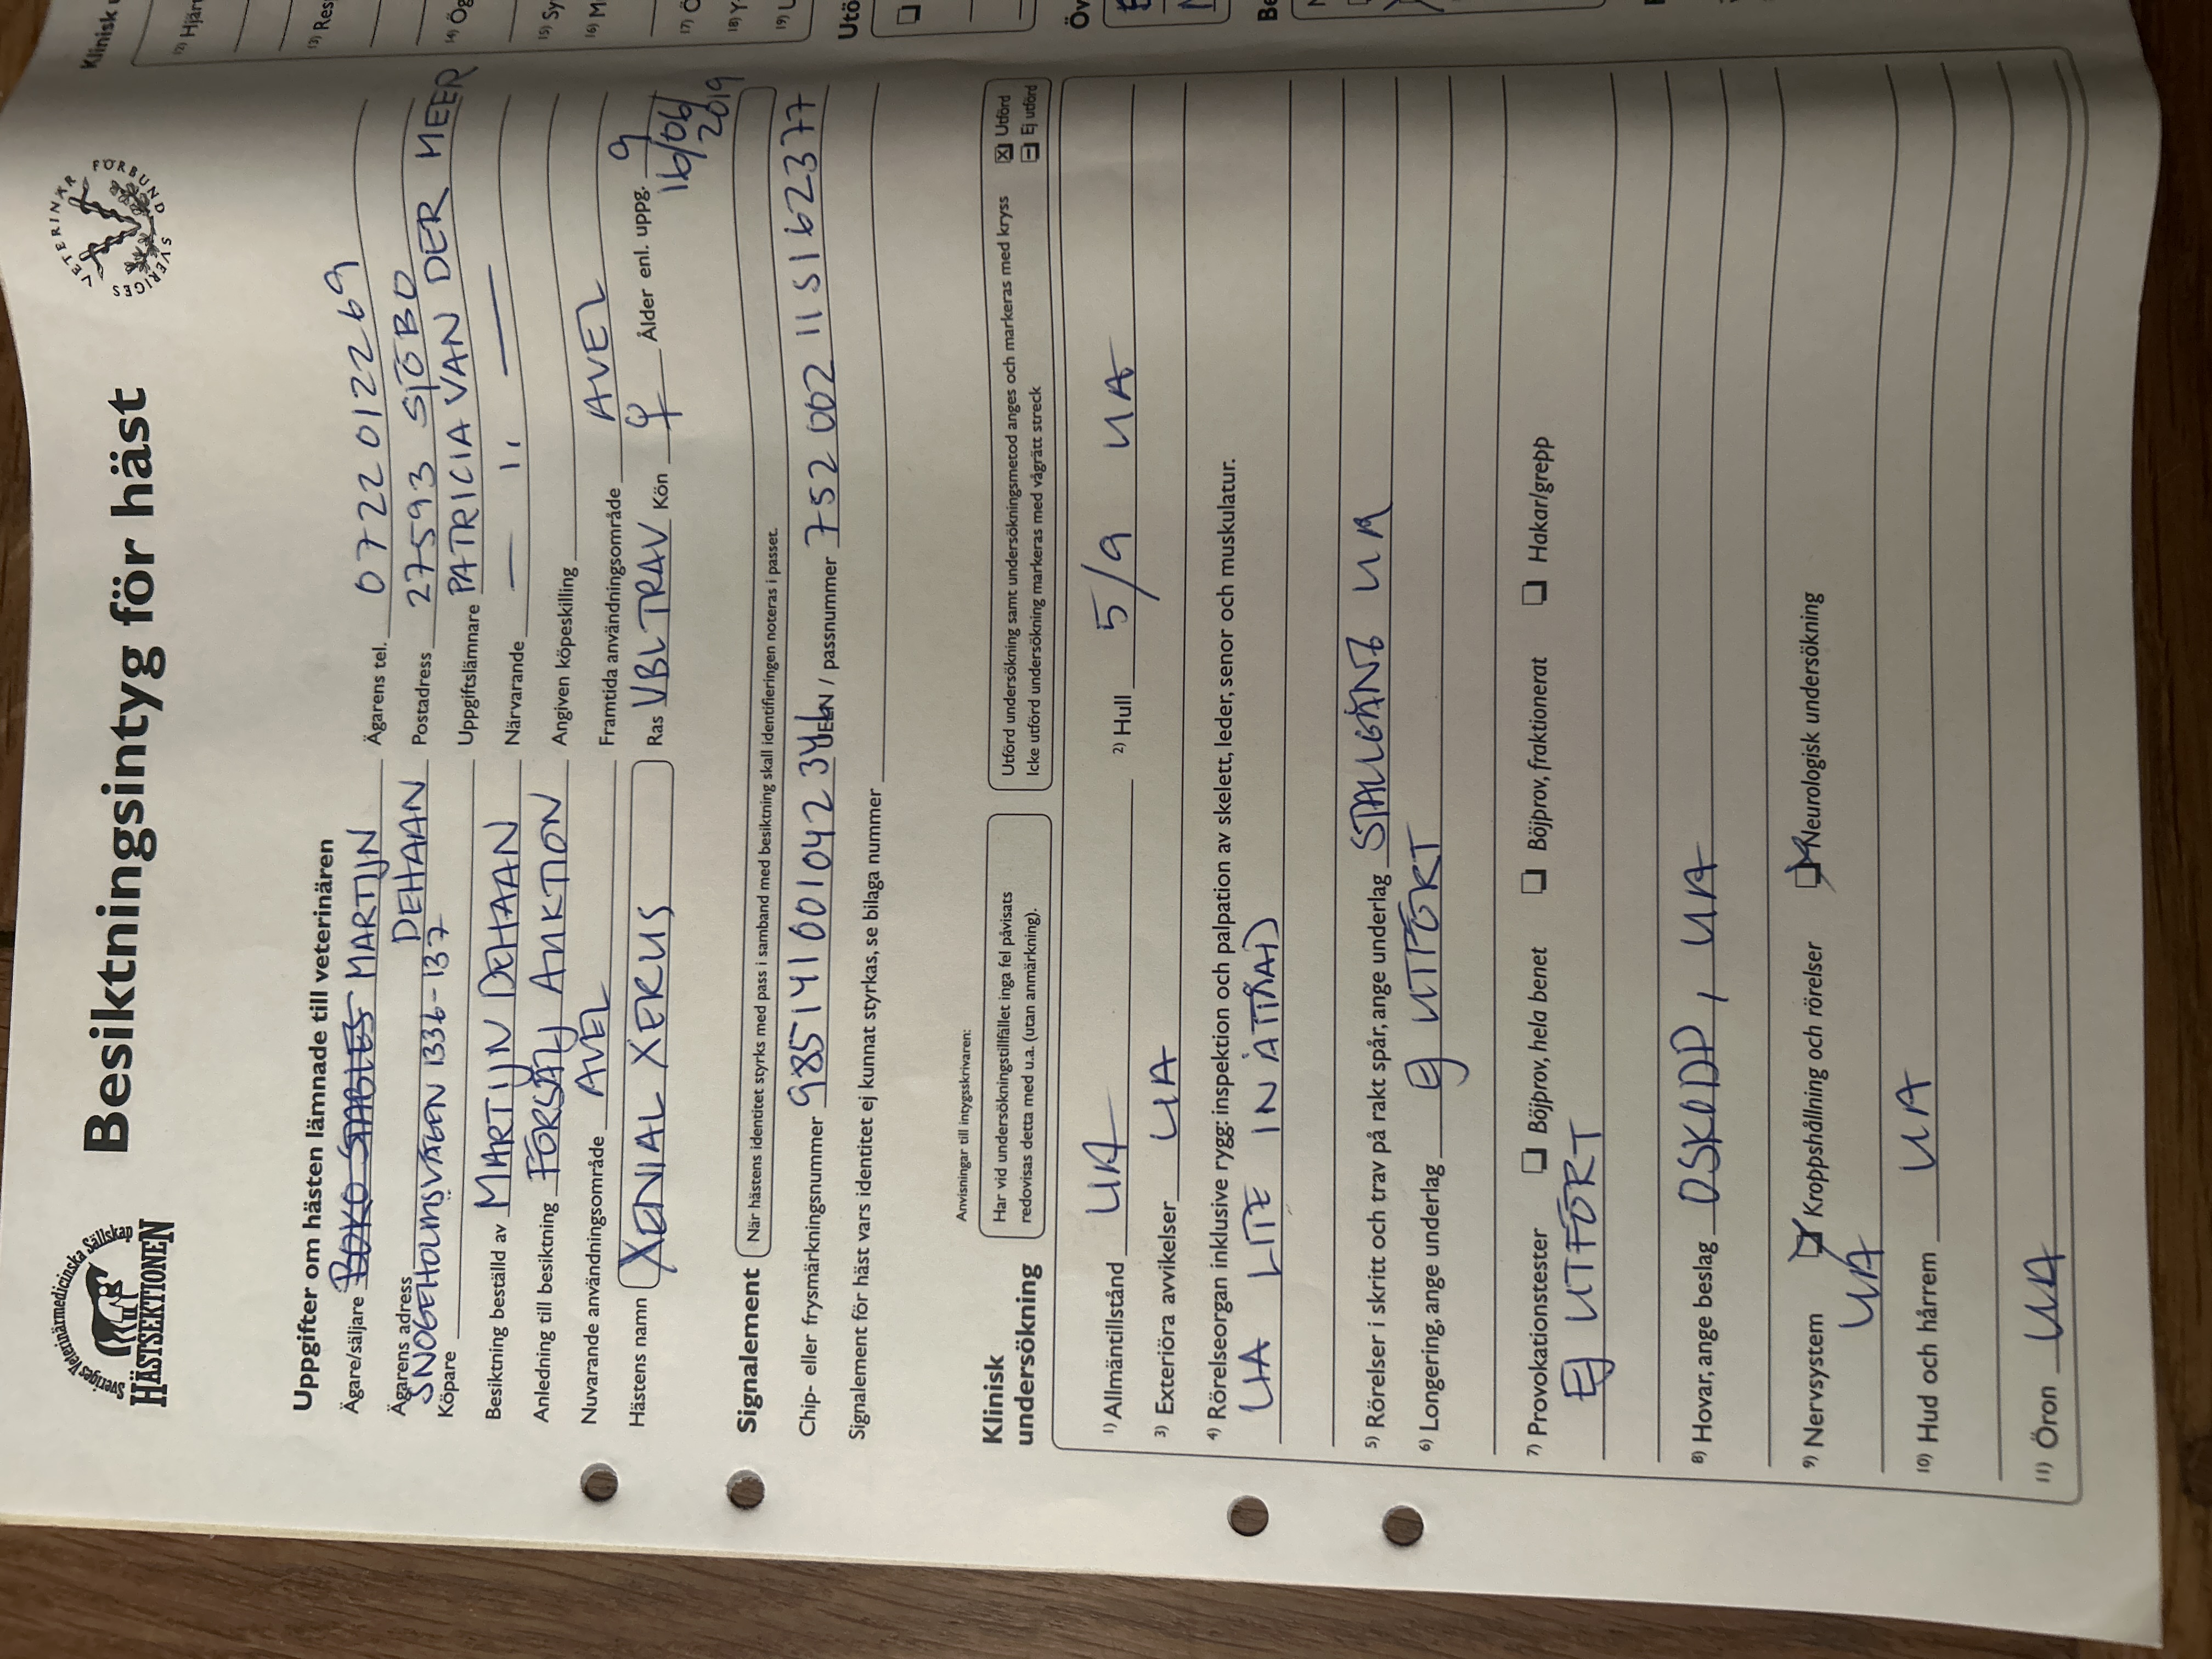 Sveriges Veterinärmedicinska Sällskap
HÄSTSEKTIONEN
Besiktningsintyg för häst
SVERIGES VETERINÄR FÖRBUND
Uppgifter om hästen lämnade till veterinären
Ägare/säljare BOKO STABLES MARTIJN DEHAAN
Ägarens tel. 0722012269
Ägarens adress SNOGEHOLMSVÄGEN 1336-137
Postadress 27593 SJÖBO
Köpare
Uppgiftslämnare PATRICIA VAN DER MEER
Besiktning beställd av MARTIJN DEHAAN
Närvarande — ıı —
Anledning till besiktning FÖRSÄLJ AUKTION
Angiven köpeskilling
Nuvarande användningsområde AVEL
Framtida användningsområde AVEL
Hästens namn XENIAL XERUS
Ras VBL TRAV Kön ♀ Ålder enl. uppg. 9
16/06/2019
Signalement
När hästens identitet styrks med pass i samband med besiktning skall identifieringen noteras i passet.
Chip- eller frysmärkningsnummer 985141001042344 UELN / passnummer 752002115162377
Signalement för häst vars identitet ej kunnat styrkas, se bilaga nummer
Anvisningar till intygsskrivaren:
Klinisk undersökning
Har vid undersökningstillfället inga fel påvisats
redovisas detta med u.a. (utan anmärkning).
Utförd undersökning samt undersökningsmetod anges och markeras med kryss
Icke utförd undersökning markeras med vågrätt streck
☒ Utförd
⊟ Ej utförd
1) Allmäntillstånd UA 2) Hull 5/9 UA
3) Exteriöra avvikelser UA
4) Rörelseorgan inklusive rygg: inspektion och palpation av skelett, leder, senor och muskulatur.
UA LITE INÅTTÅAD
5) Rörelser i skritt och trav på rakt spår, ange underlag STALLGÅNG UA
6) Longering, ange underlag EJ UTFÖRT
7) Provokationstester ❏ Böjprov, hela benet ❏ Böjprov, fraktionerat ❏ Hakar/grepp
EJ UTFÖRT
8) Hovar, ange beslag OSKODD, UA
9) Nervsystem ☒ Kroppshållning och rörelser ☒ Neurologisk undersökning
UA
10) Hud och hårrem UA
11) Öron UA
Klinisk
12) Hjär
13) Res
14) Ög
15) Sy
16) M
17) Ö
18) Y
19) U
Utö
Öv
Be